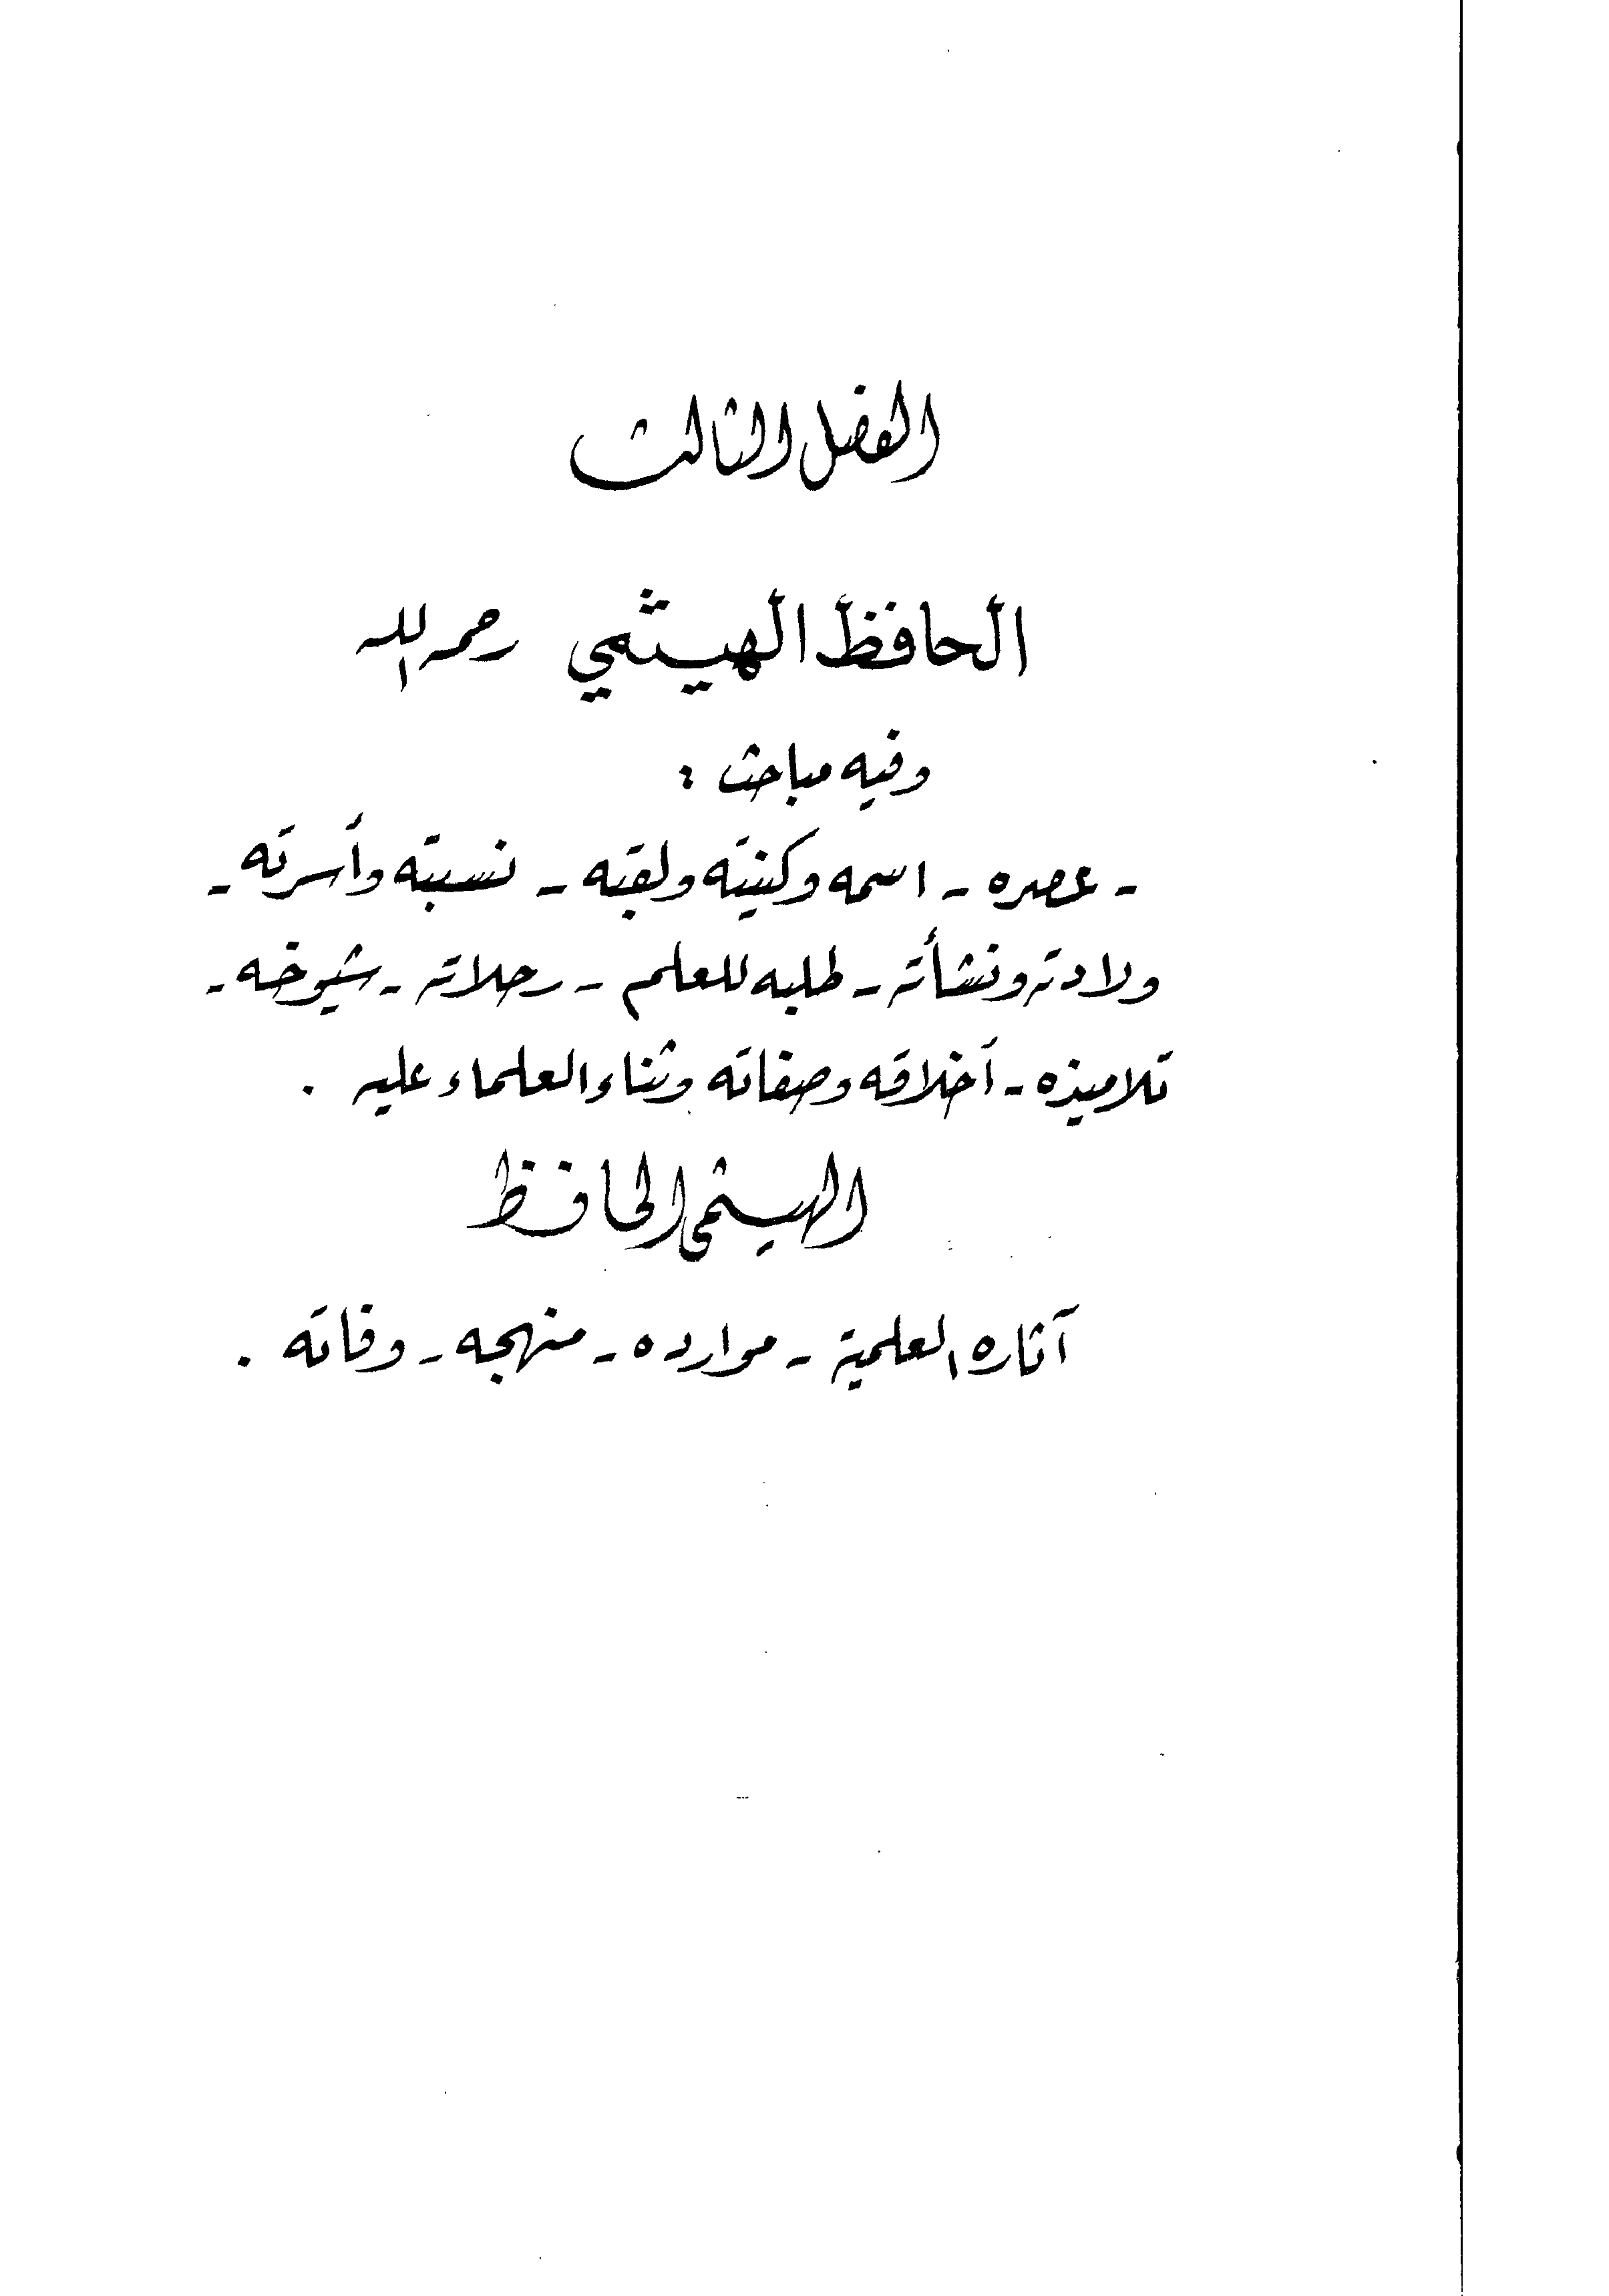 الفصل الثالث
الحافظ الهيثمي رحمه الله
وفيه مباحث :
- عصره - اسمه وكنيته ولقبه - نسبته وأسرته -
ولادته ونشأته - طلبه للعلم - رحلاته - شيوخه -
تلاميذه - أخلاقه وصفاته وثناء العلماء عليه .
الهيثمي الحافظ
آثاره العلمية - موارده - منهجه - وفاته .